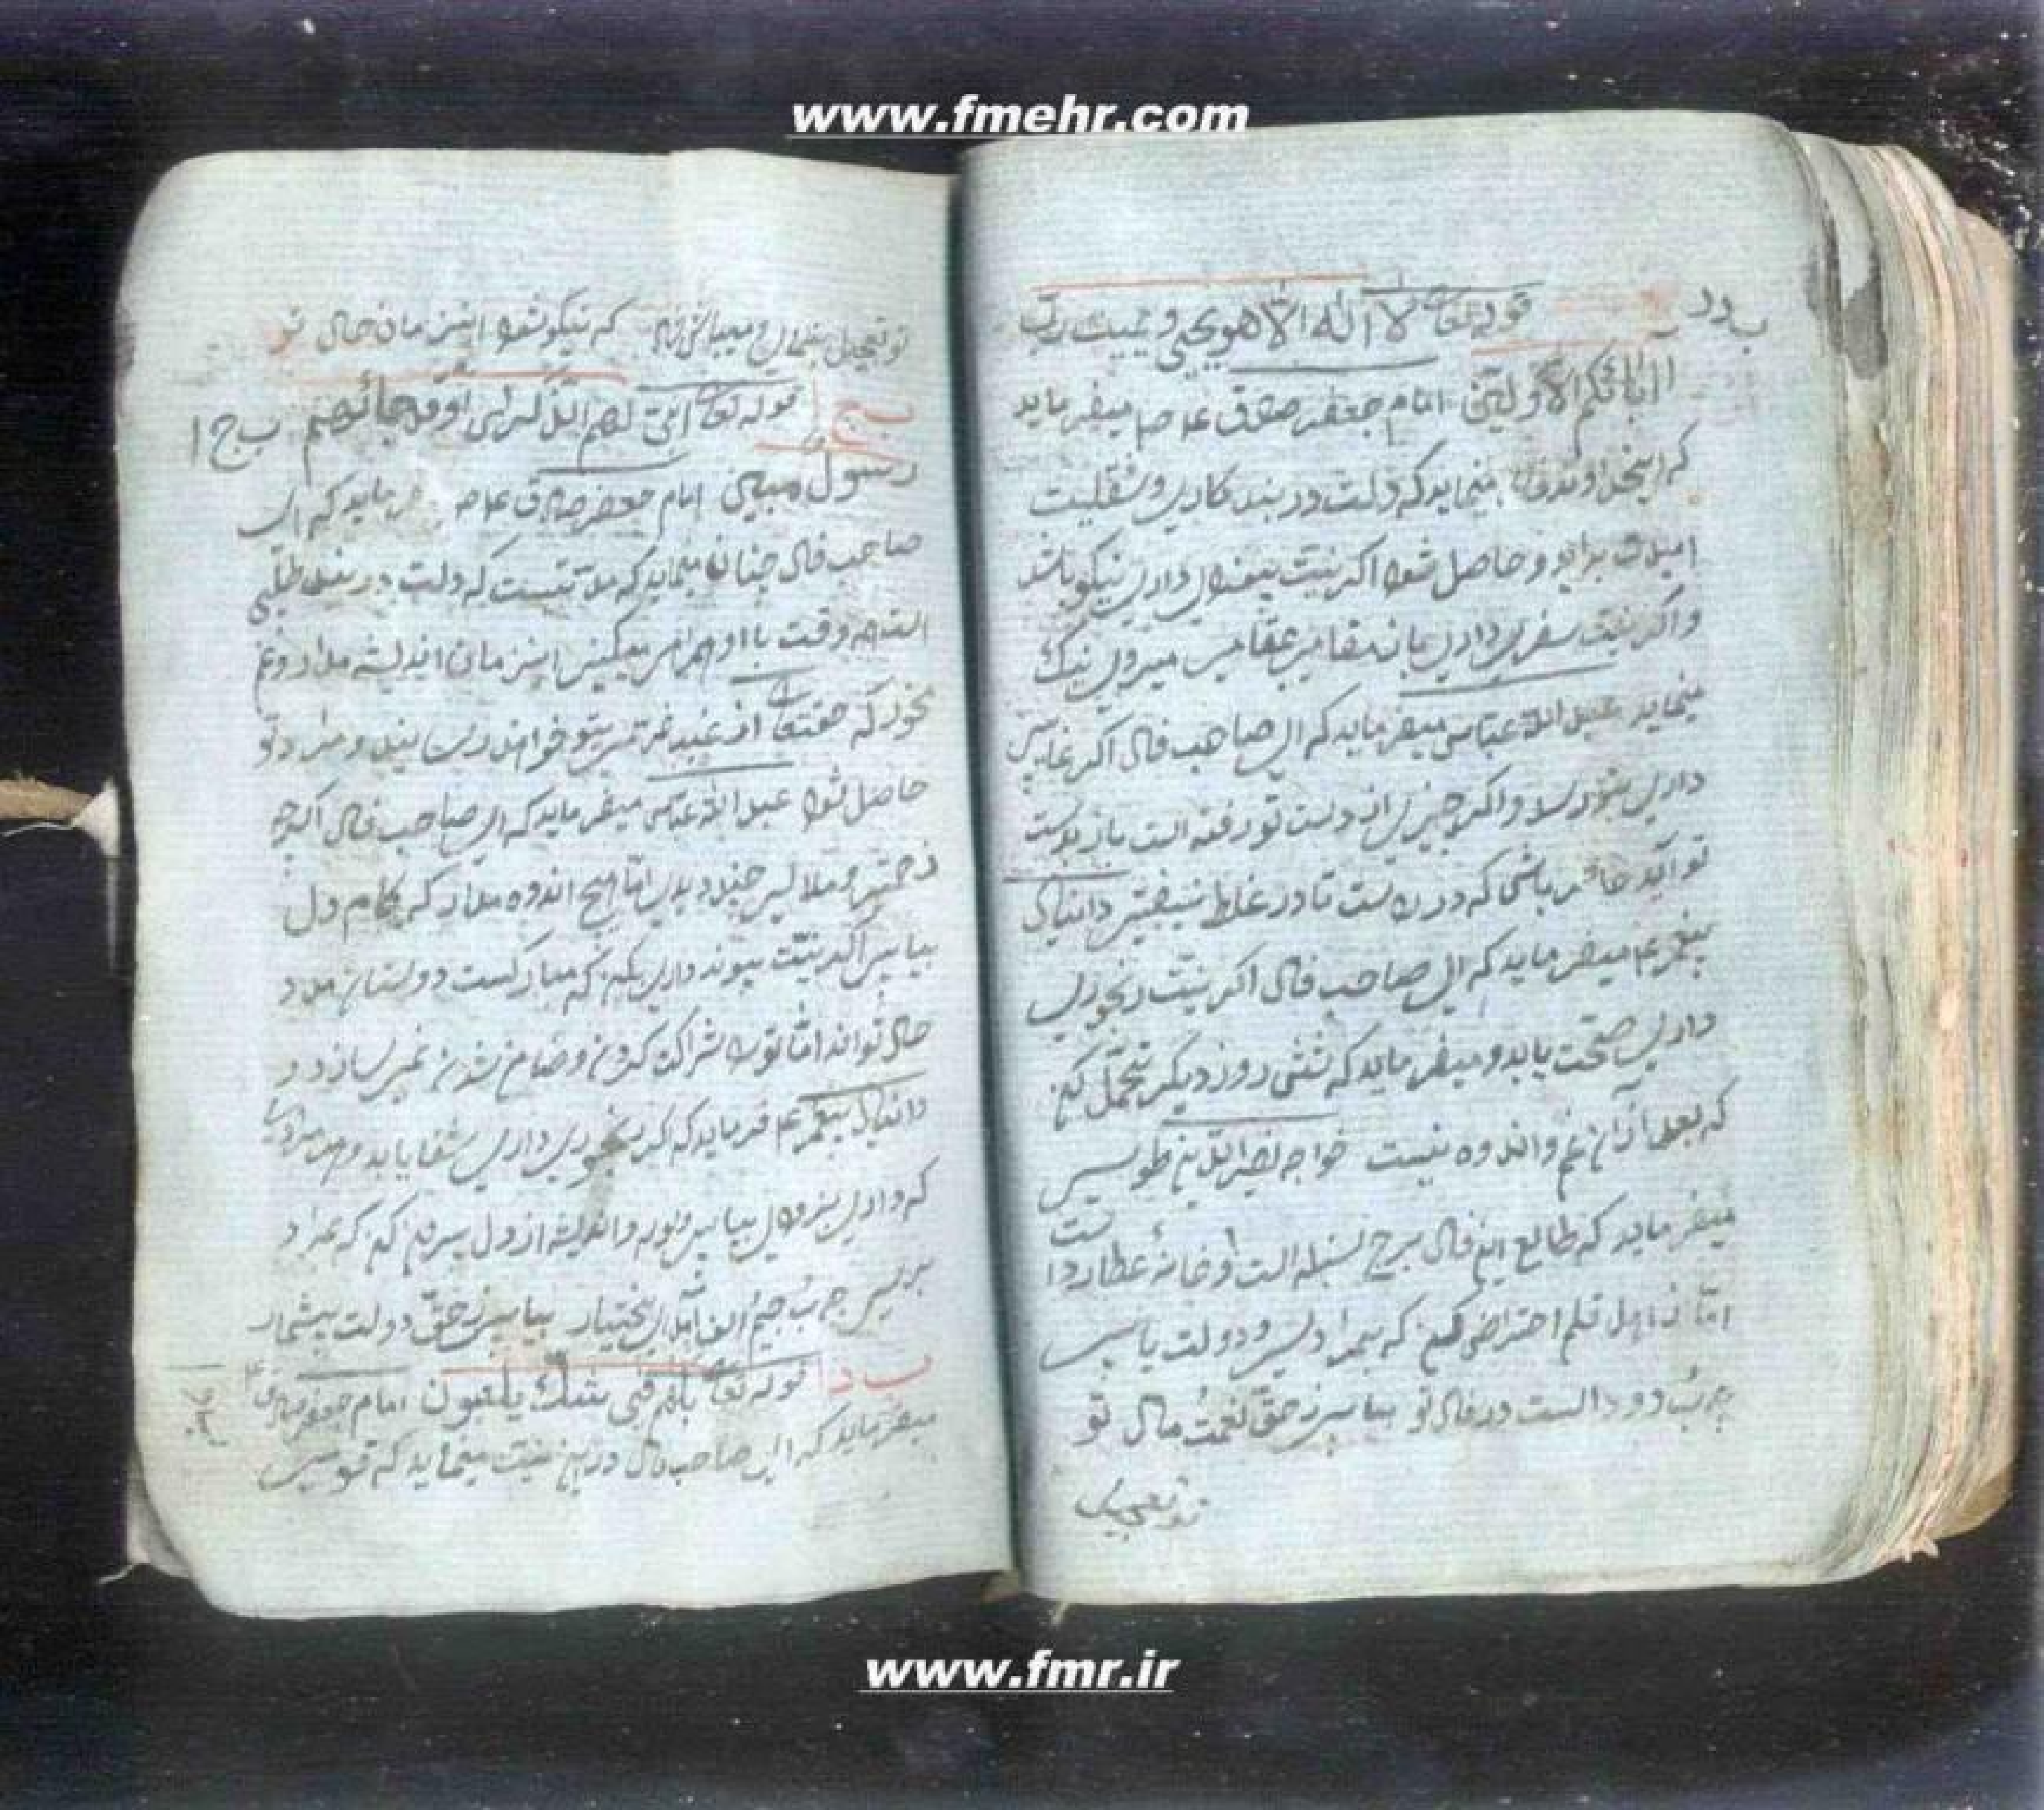 www.fmehr.com
ب د د
قوله تعالی لا اله الا هو یحیی و یمیت ربکم و رب
ابائکم الاولین امام جعفر صادق میفرماید
که این مینماید که دلت در بند کاری و شغلیست
برآید و حاصل شود اکر نیت داری نیکو باشد
واکر نیت سفری داری یا از مقامی بمقامی میروی نیک
مینماید عبد الله عباس میفرماید که ای صاحب فال اکر غایبی
داری بتو رسد و اکر چیزی از دست تو رفته است باز بدست
تو آید باشی که تا در غلط نیفتی دانیال
پیغمبر ع میفرماید که ای صاحب فال اکر نیت رنجوری
داری صحت یابد و میفرماید که شش روز دیکر تحمل کن
که بعد از آن غم و اندوه نیست خواجه نصیر الدین طوسی
میفرماید که طالع این فال برج سنبله است و خانهٔ عطارد است
اما از اهل قلم احتراض کن که بمراد و دولت یابی
چو ب دو دالست در فال تو بیابی ز حق نعمت مال تو
تو تعجیل
تو تعجیل که نیکو شود این زمان حال تو
ب ج ا
قوله تعالی انی لهم الذکری و قد جائهم
ب ج ا
رسول مبین امام جعفر صادق فرماید که ای
صاحب فال چنان مینماید که مدتیست که دلت در بند طلبی
است وقت با او میکنی این زمان اندیشه مدار و غم
نخور که حقتعالی از غیب بتو خواهد رسانید و مراد تو
حاصل شود عبد الله عباس میفرماید که ای صاحب فال اکرچه
زحمت و ملالی چند دیدی اما هیچ اندوه مدار که بکام دل
بیابی اکر نیت پیوند داری بکن که مبارکست دوستان
حال تو اند اما تورا شراکت کردن و ضامن شدن نمی سازد و
دانیال پیغمبر ع فرماید که اکر رنجوری داری شفا یابد و هر مرادی
که داری بزودی بیابی و اندیشه از دل بیرون کن که بمراد
برسی چو ب جیم الف آمد ای بختیار بیابی ز حق دولت بیشمار
ب د ا
قوله تعالی بل هم فی شک یلعبون امام جعفر صادق
میفرماید که ای صاحب فال در این نیت مینماید که
www.fmr.ir